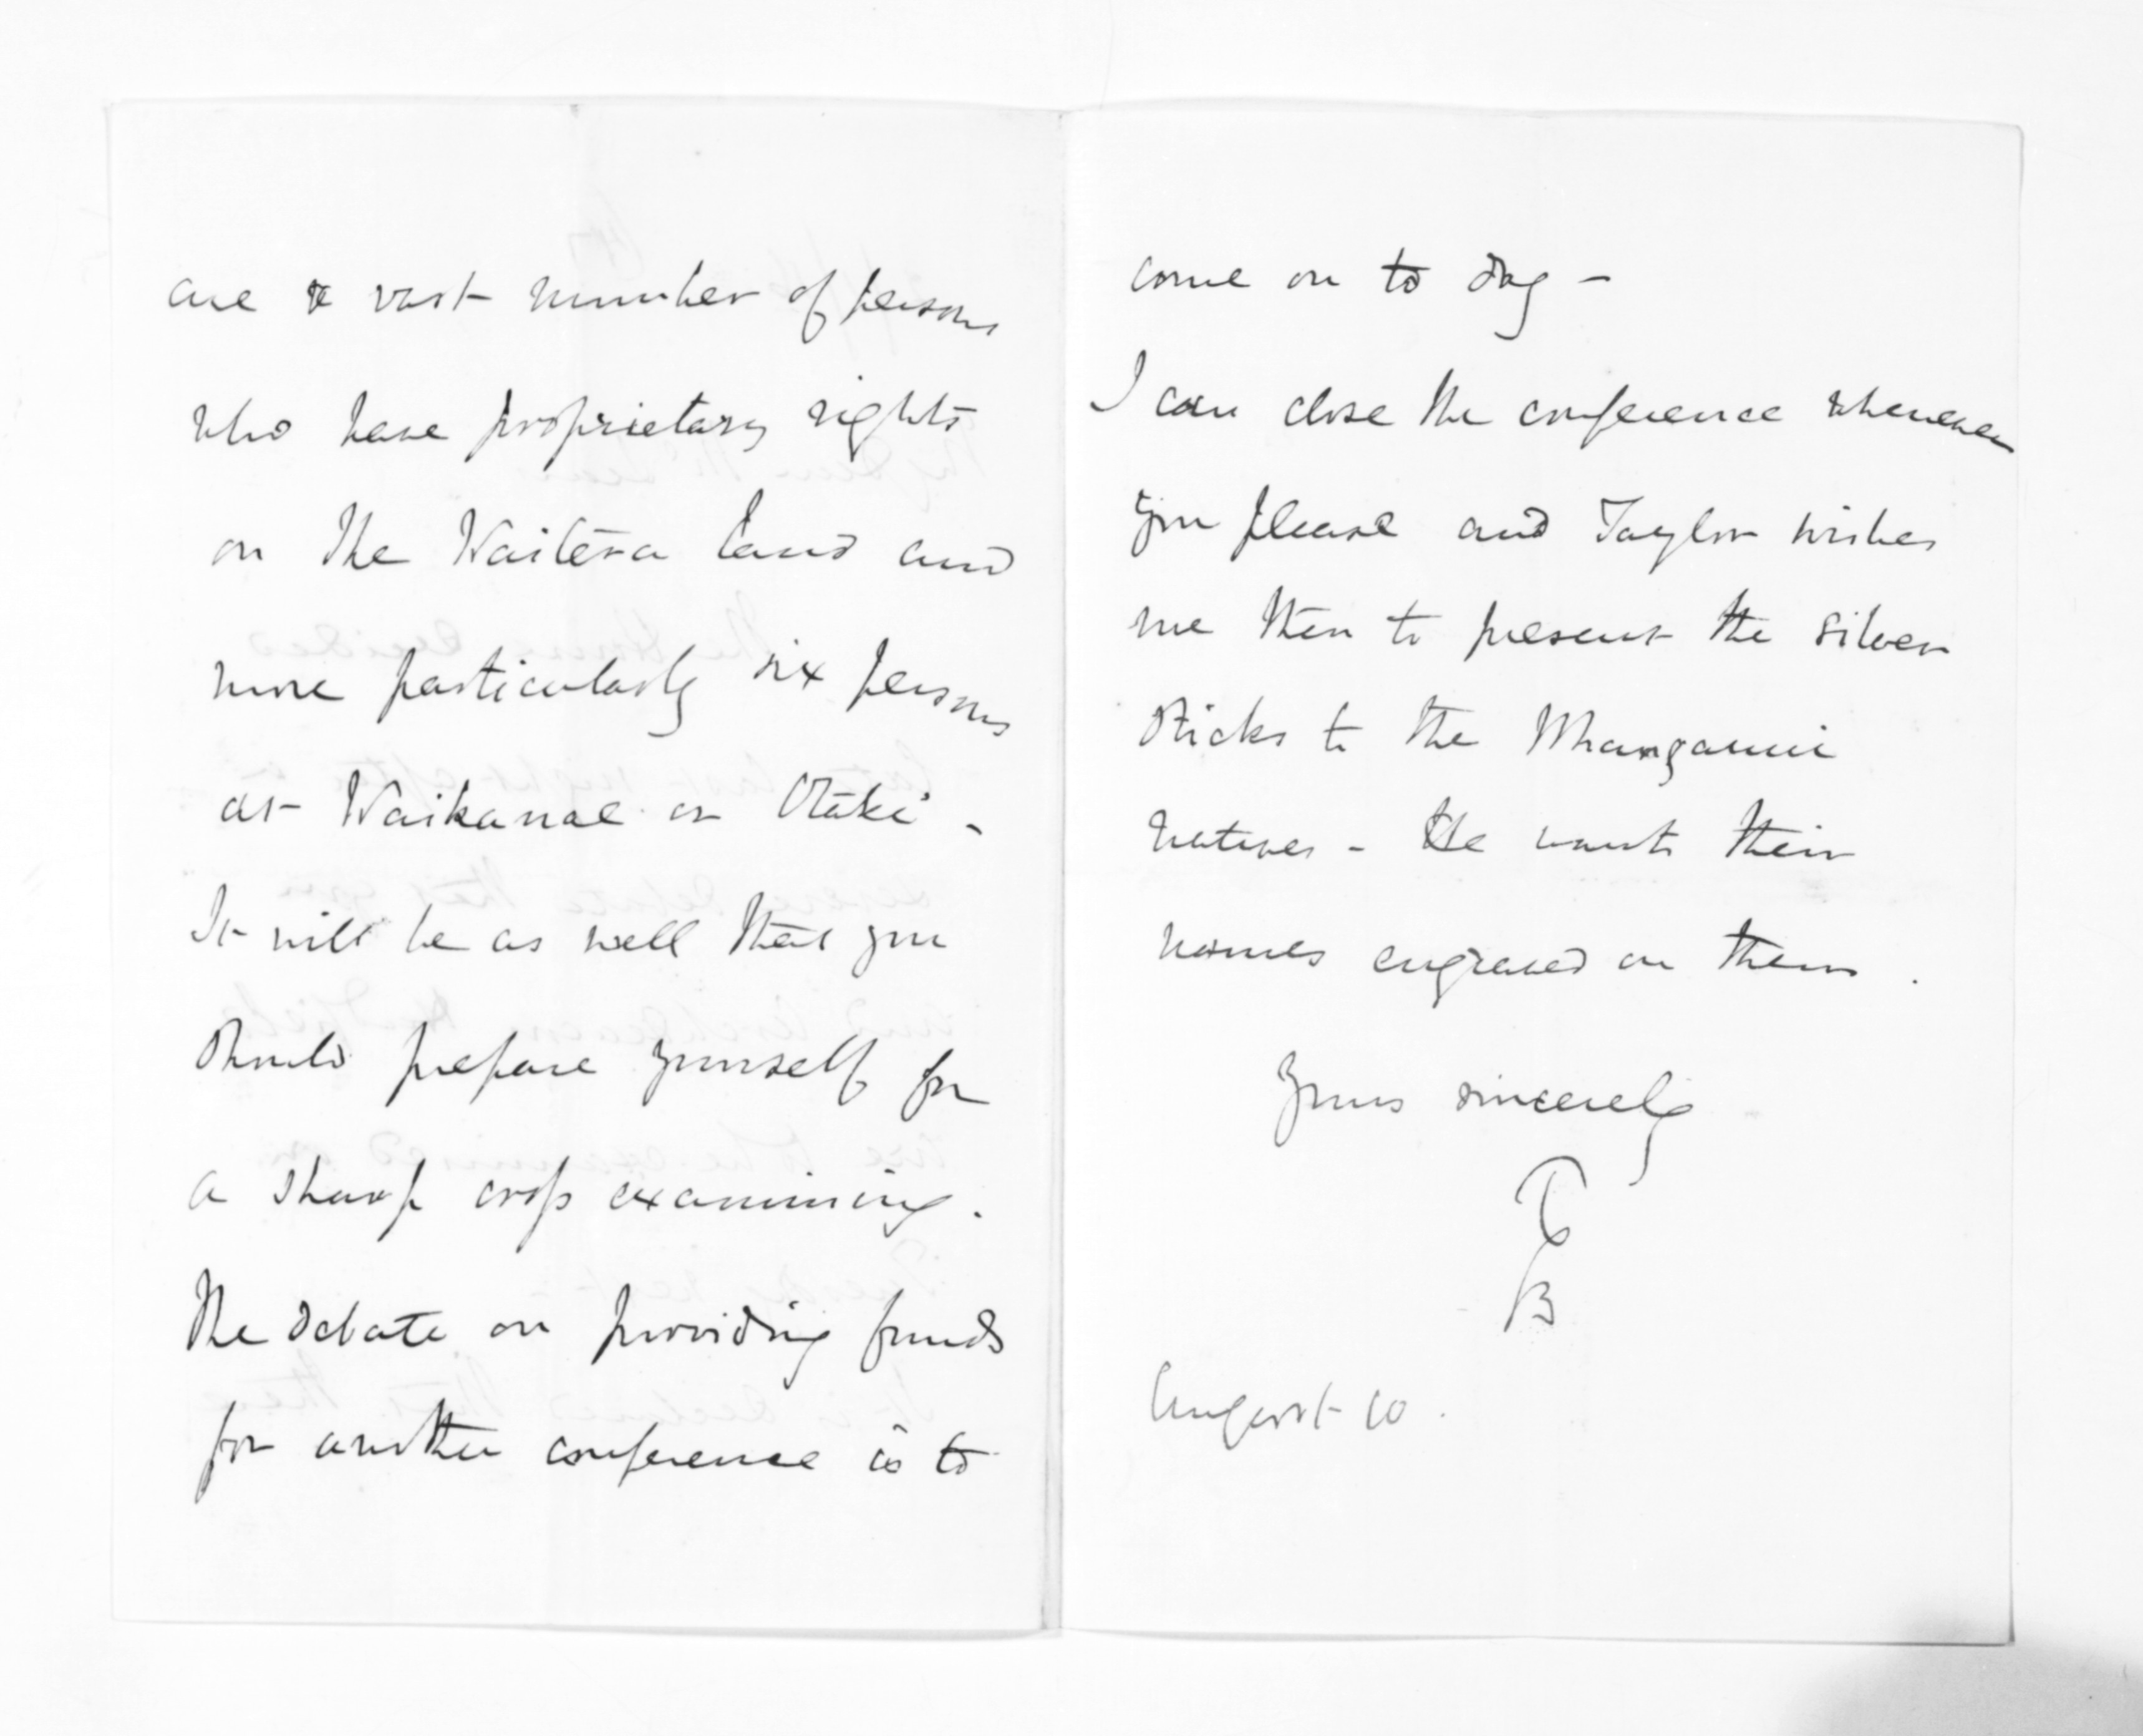 are a vast number of persons
who have proprietary rights
on the Waitera land and
more particularly six persons
at Waikanae or Otaki -
It will be as well that you
should prepare yourself for
a sharp cross examining.
The debate on providing funds
for another conference is to
come on to day -
I can close the conference whenever
you please and Taylor wishes
me then to present the silver
sticks to the Whanganui
natives - He wants their
names engraved on them.
Yours sincerely
TGB
August 10.